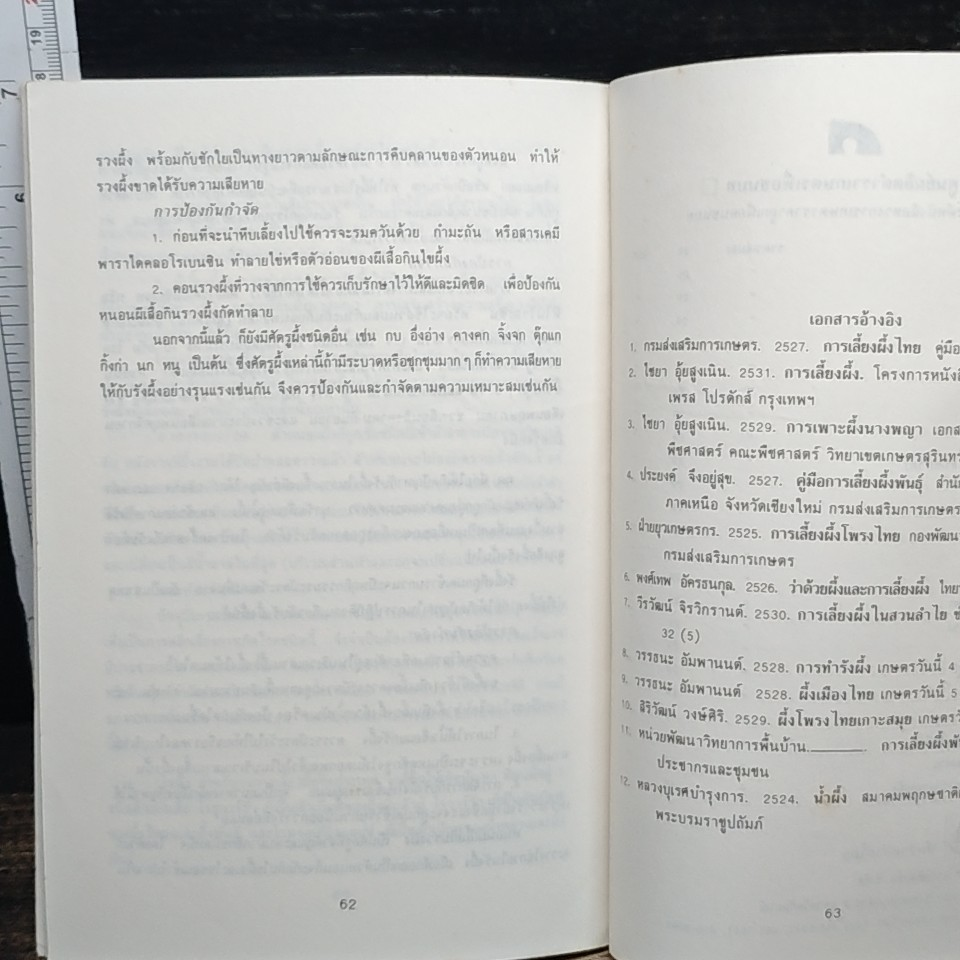 รวงผึ้ง พร้อมกับชักใยเป็นทางยาวตามลักษณะการคืบคลานของตัวหนอน ทำให้
รวงผึ้งขาดได้รับความเสียหาย
การป้องกันกำจัด
1. ก่อนที่จะนำหีบเลี้ยงไปใช้ควรจะรมควันด้วย กำมะถัน หรือสารเคมี
พาราไดคลอโรเบนซิน ทำลายไข่หรือตัวอ่อนของผีเสื้อกินไขผึ้ง
2. คอนรวงผึ้งที่วางจากการใช้ควรเก็บรักษาไว้ให้ดีและมิดชิด เพื่อป้องกัน
หนอนผีเสื้อกินรวงผึ้งกัดทำลาย
นอกจากนี้แล้ว ก็ยังมีศัตรูผึ้งชนิดอื่น เช่น กบ อึ่งอ่าง คางคก จิ้งจก ตุ๊กแก
กิ้งก่า นก หนู เป็นต้น ซึ่งศัตรูผึ้งเหล่านี้ถ้ามีระบาดหรือชุกชุมมาก ๆ ก็ทำความเสียหาย
ให้กับรังผึ้งอย่างรุนแรงเช่นกัน จึงควรป้องกันและกำจัดตามความเหมาะสมเช่นกัน
62
เอกสารอ้างอิง
1. กรมส่งเสริมการเกษตร. 2527. การเลี้ยงผึ้งไทย คู่มือ
2. ไชยา อุ้ยสูงเนิน. 2531. การเลี้ยงผึ้ง. โครงการหนังสื
เพรส โปรดักส์ กรุงเทพฯ
3. ไชยา อุ้ยสูงเนิน. 2529. การเพาะผึ้งนางพญา เอกส
พืชศาสตร์ คณะพืชศาสตร์ วิทยาเขตเกษตรสุรินทร
4. ประยงค์ จึงอยู่สุข. 2527. คู่มือการเลี้ยงผึ้งพันธุ์ สำนัก
ภาคเหนือ จังหวัดเชียงใหม่ กรมส่งเสริมการเกษตร
5. ฝ่ายยุวเกษตรกร. 2525. การเลี้ยงผึ้งโพรงไทย กองพัฒนา
กรมส่งเสริมการเกษตร
6. พงศ์เทพ อัครธนกุล. 2526. ว่าด้วยผึ้งและการเลี้ยงผึ้ง ไทย
7. วีรวัฒน์ จิรวิกรานต์. 2530. การเลี้ยงผึ้งในสวนลำไย
32 (5)
8. วรรธนะ อัมพานนต์. 2528. การทำรังผึ้ง เกษตรวันนี้ 4
9. วรรธนะ อัมพานนต์ 2528. ผึ้งเมืองไทย เกษตรวันนี้ 5
10. สิริวัฒน์ วงษ์ศิริ. 2529. ผึ้งโพรงไทยเกาะสมุย เกษตรวั
11. หน่วยพัฒนาวิทยาการพื้นบ้าน.________. การเลี้ยงผึ้งพั
ประชากรและชุมชน
12. หลวงบุเรศบำรุงการ. 2524. น้ำผึ้ง สมาคมพฤกษชาติ
พระบรมราชูปถัมภ์
63